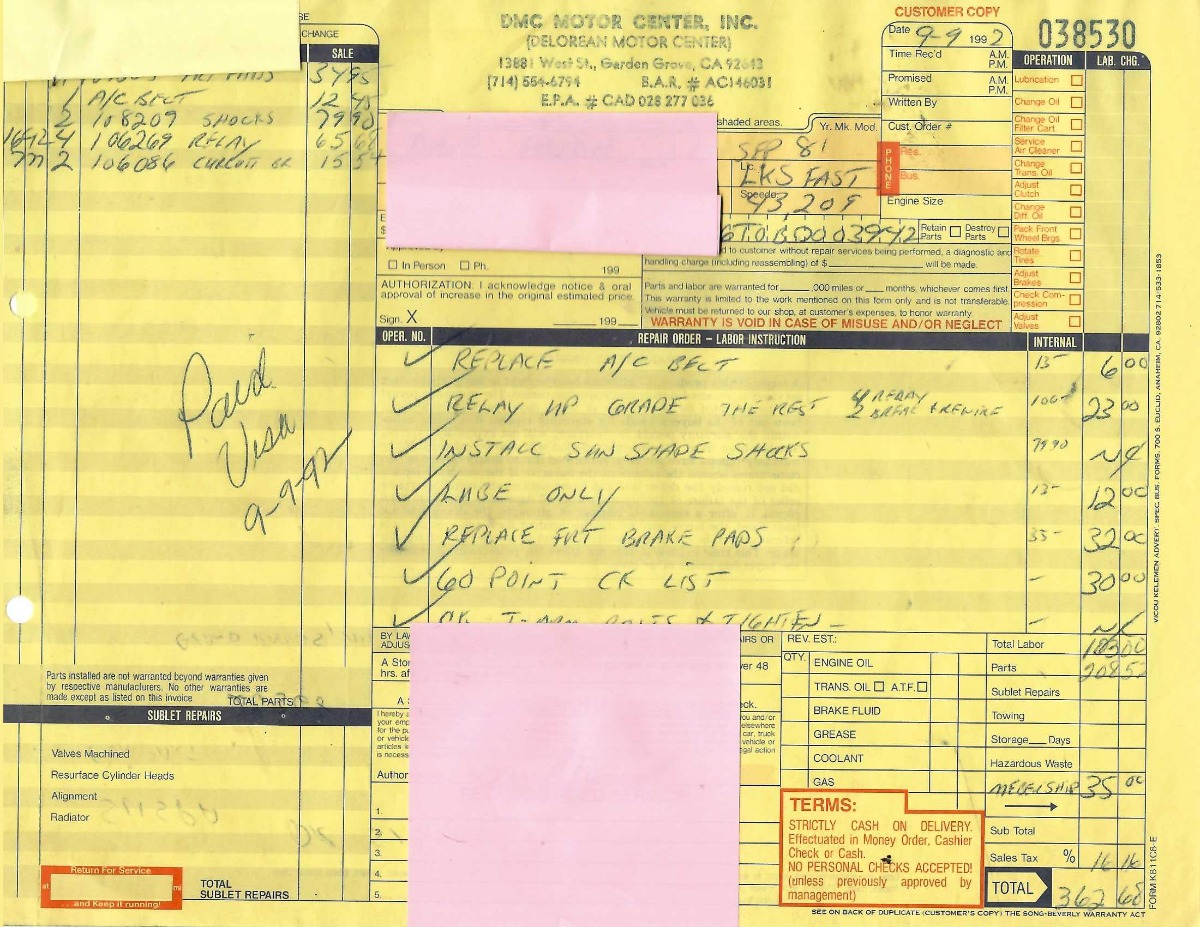 SE
CHANGE
SALE
PADS 34 95
1 A/C BELT 12 45
2 108209 SHOCKS 79 90
4 106269 RELAY 65 66
2 106086 15 54
DMC MOTOR CENTER, INC.
(DELOREAN MOTOR CENTER)
13881 West St., Garden Grove, CA 92643
(714) 554-6794 B.A.R. # AC146031
E.P.A. # CAD 028 277 036
shaded areas.
CUSTOMER COPY
Date 9-9 1992
038530
Time Rec'd A.M. P.M.
Promised A.M. P.M.
Written By
Yr. Mk. Mod.
Cust. Order #
SEP 81
Lic.
LKS FAST
Speedo.
43,209
PHONE
Res.
Bus.
Engine Size
6T0B0003942
Retain Parts
Destroy Parts
OPERATION LAB. CHG.
Lubrication
Change Oil
Change Oil Filter Cart.
Service Air Cleaner
Change Trans. Oil
Adjust Clutch
Change Diff. Oil
Pack Front Wheel Brgs.
Rotate Tires
Adjust Brakes
Check Compression
Adjust Valves
E
$
In Person Ph. 199
AUTHORIZATION: I acknowledge notice & oral
approval of increase in the original estimated price.
Sign. X 199
d to customer without repair services being performed, a diagnostic and
handling charge (including reassembling) of $ will be made.
Parts and labor are warranted for ,000 miles or months, whichever comes first.
This warranty is limited to the work mentioned on this form only and is not transferable.
Vehicle must be returned to our shop, at customer's expenses, to honor warranty.
WARRANTY IS VOID IN CASE OF MISUSE AND/OR NEGLECT
OPER. NO. REPAIR ORDER – LABOR INSTRUCTION INTERNAL
REPLACE A/C BELT 13- 6 00
RELAY UP GRADE THE REST 4 RELAY 2 BREAK & REWIRE 106- 23 00
INSTALL SUN SHADE SHOCKS 79 90 N/C
LUBE ONLY 13- 12 00
REPLACE FRT BRAKE PADS 35- 32 00
60 POINT CK LIST - 30 00
CK T-ARM BOLTS & TIGHTEN - N/C
Paid
Visa
9-9-92
Parts installed are not warranted beyond warranties given
by respective manufacturers. No other warranties are
made except as listed on this invoice
TOTAL PARTS
SUBLET REPAIRS
Valves Machined
Resurface Cylinder Heads
Alignment
Radiator
Return For Service
at mi
...and Keep it running!
TOTAL
SUBLET REPAIRS
BY LAW
ADJUS
A Stor
hrs. af
A S
I hereby a
your emp
for the pu
or vehicle
articles le
is necess
Author
1.
2.
3.
4.
5.
IRS OR
ver 48
ck.
you and/or
elsewhere
car, truck
vehicle or
gal action
REV. EST.:
QTY.
ENGINE OIL
TRANS. OIL A.T.F.
BRAKE FLUID
GREASE
COOLANT
GAS
TERMS:
STRICTLY CASH ON DELIVERY.
Effectuated in Money Order, Cashier
Check or Cash.
NO PERSONAL CHECKS ACCEPTED!
(unless previously approved by
management)
Total Labor 103 00
Parts 208 52
Sublet Repairs
Towing
Storage Days
Hazardous Waste
MEBERSHIP 35 00
Sub Total
Sales Tax % 16 16
TOTAL 362 68
SEE ON BACK OF DUPLICATE (CUSTOMER'S COPY) THE SONG-BEVERLY WARRANTY ACT
WCOU KELEMEN ADVERT. SPEC. BUS. FORMS, 700 S. EUCLID, ANAHEIM, CA. 92802 714/533-1853
FORM KB11C8-E